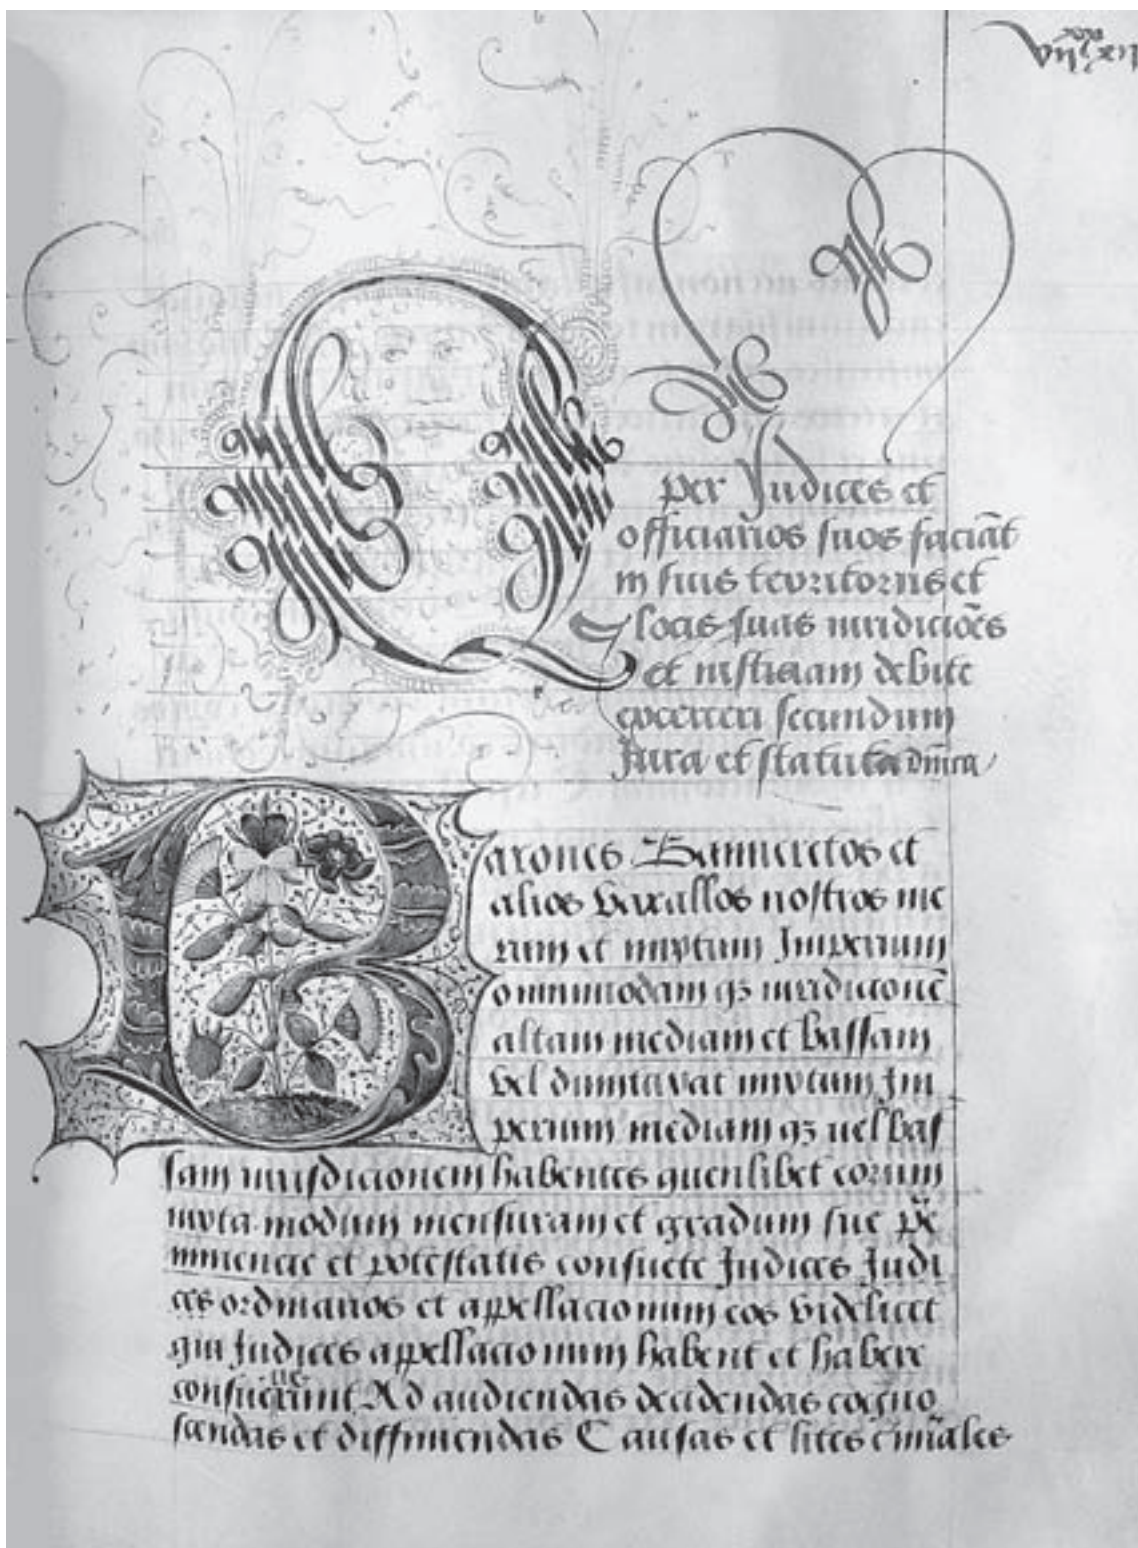 Q
per Judices et
officiarios suos faciāt
in suis territoriis et
locis suas iuridiciōes
et iusticiam debite
exerceri secundum
Jura et statuta
Barones Banneretos et
alios vaxallos nostros me
rum et mixtum Imperium
omnimodam qȝ iuridicionē
altam mediam et bassam
vel dumtaxat mixtum Im
perium mediam qȝ uel bas
sam iurisdicionem habentes quenlibet eorum
iuxta modum mensuram et gradum sue p̄e
minencie et potestatis consuete Judices Judi
ces ordinarios et appellacionum eos videlicet
qui Judices appellacionum habent et habere
consueuerunt Ad audiendas decidendas cogno
scendas et diffiniendas Causas et lites